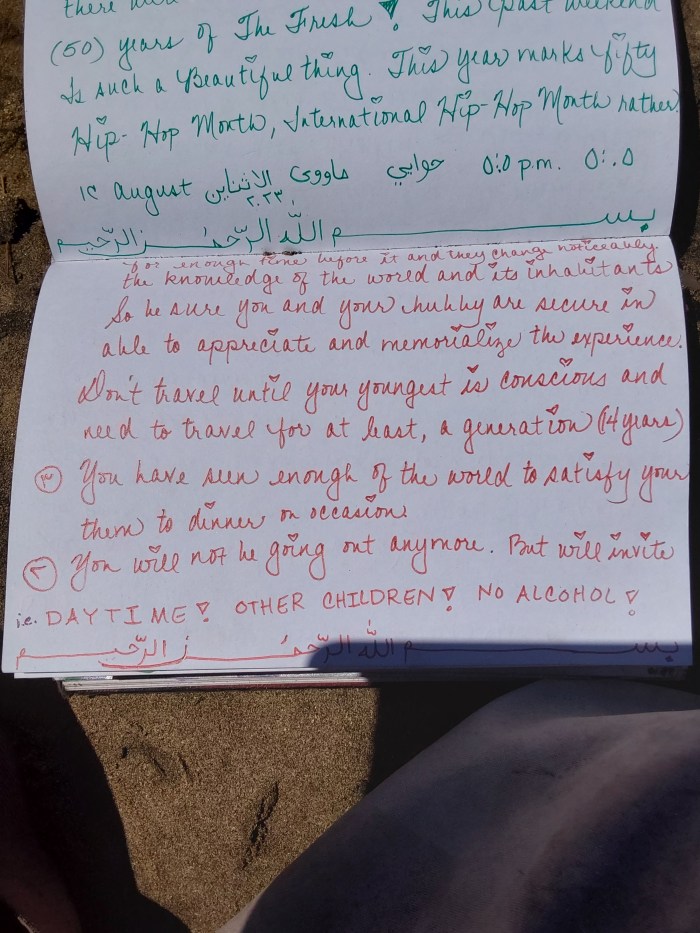 بسم الله الرحمن الرحيم
١٤ august الاثناين ماووى حوايي ٥:٥ p.m. ٥:.٥
٢.٢٣
Hip-Hop Month, International Hip-Hop Month rather.
Is such a Beautiful thing. This year marks fifty
(50) years of The Fresh! This past weekend
there
بسم الله الرحمن الرحيم
i.e. DAYTIME! OTHER CHILDREN! NO ALCOHOL!
٢ You will not be going out anymore. But will invite
them to dinner, on occasion.
٣ You have seen enough of the world to satisfy your
need to travel for at least, a generation (14 years)
Don't travel until your youngest is conscious and
able to appreciate and memorialize the experience.
So be sure you and your hubby are secure in
the knowledge of the world and its inhabitants
for enough time before it and they change noticeably.